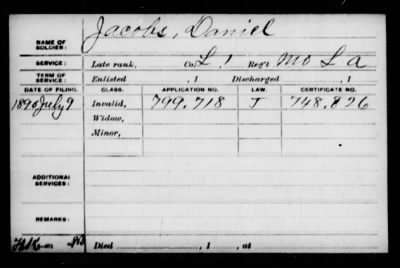 NAME OF SOLDIER: Jacobs, Daniel
SERVICE: Late rank, Co. L, 1 Reg't Mo L A
TERM OF SERVICE: Enlisted , 1 Discharged , 1
DATE OF FILING. CLASS. APPLICATION NO. LAW. CERTIFICATE NO.
1890 July 9 Invalid, 799.718 J 748.826
Widow,
Minor,
ADDITIONAL SERVICES:
REMARKS:
Died , 1 , at